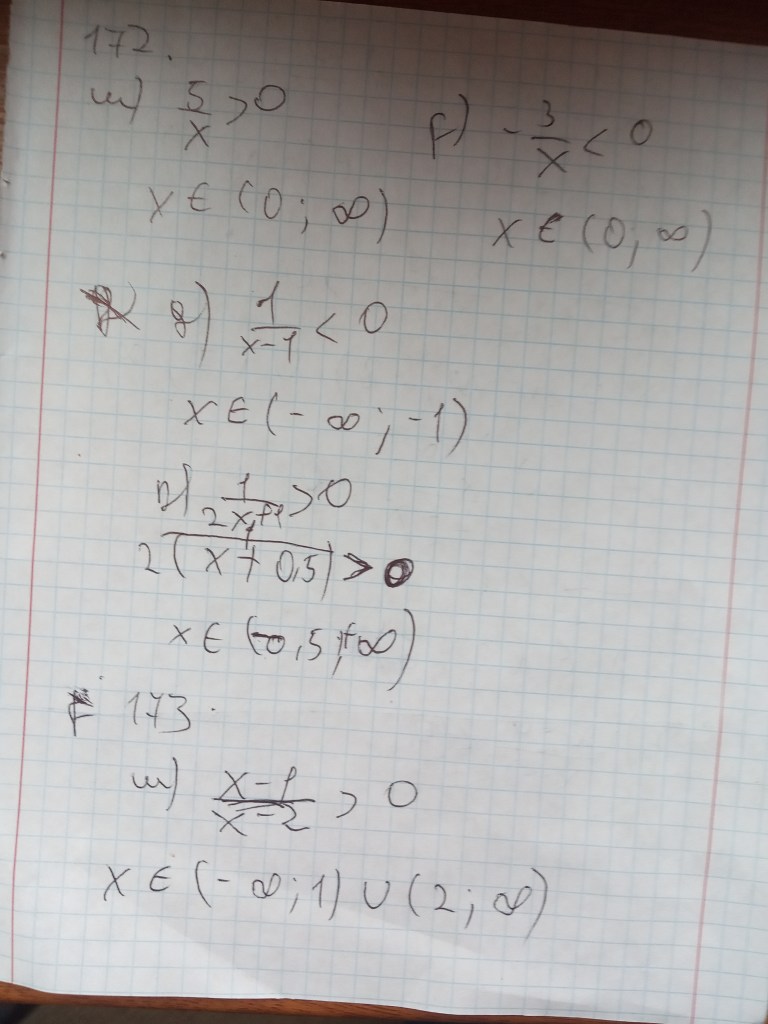 172.
ա) 5/x > 0
բ) - 3/x < 0
x ∈ (0; ∞)
x ∈ (0; ∞)
գ) 1/(x-1) < 0
x ∈ (-∞; -1)
1/(2x+1) > 0
2(x + 0,5) > 0
x ∈ (-0,5; +∞)
173.
ա) (x-1)/(x-2) > 0
x ∈ (-∞; 1) ∪ (2; ∞)